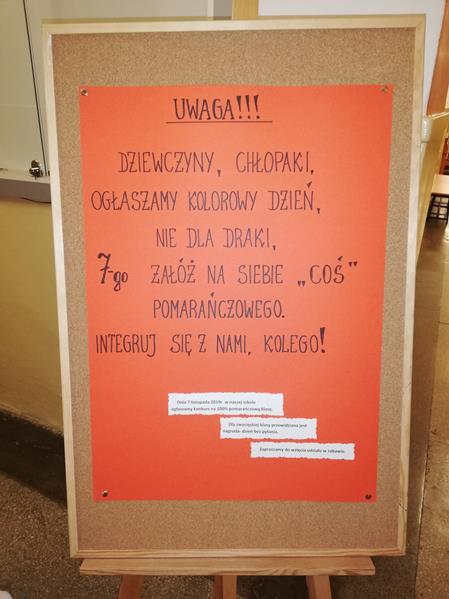 UWAGA!!!
DZIEWCZYNY, CHŁOPAKI,
OGŁASZAMY KOLOROWY DZIEŃ,
NIE DLA DRAKI,
7-go ZAŁÓŻ NA SIEBIE „COŚ"
POMARAŃCZOWEGO.
INTEGRUJ SIĘ Z NAMI, KOLEGO!
Dnia 7 listopada 2019r. w naszej szkole
ogłaszamy konkurs na 100% pomarańczową klasę.
Dla zwycięskiej klasy przewidziana jest
nagroda- dzień bez pytania.
Zapraszamy do wzięcia udziału w zabawie.